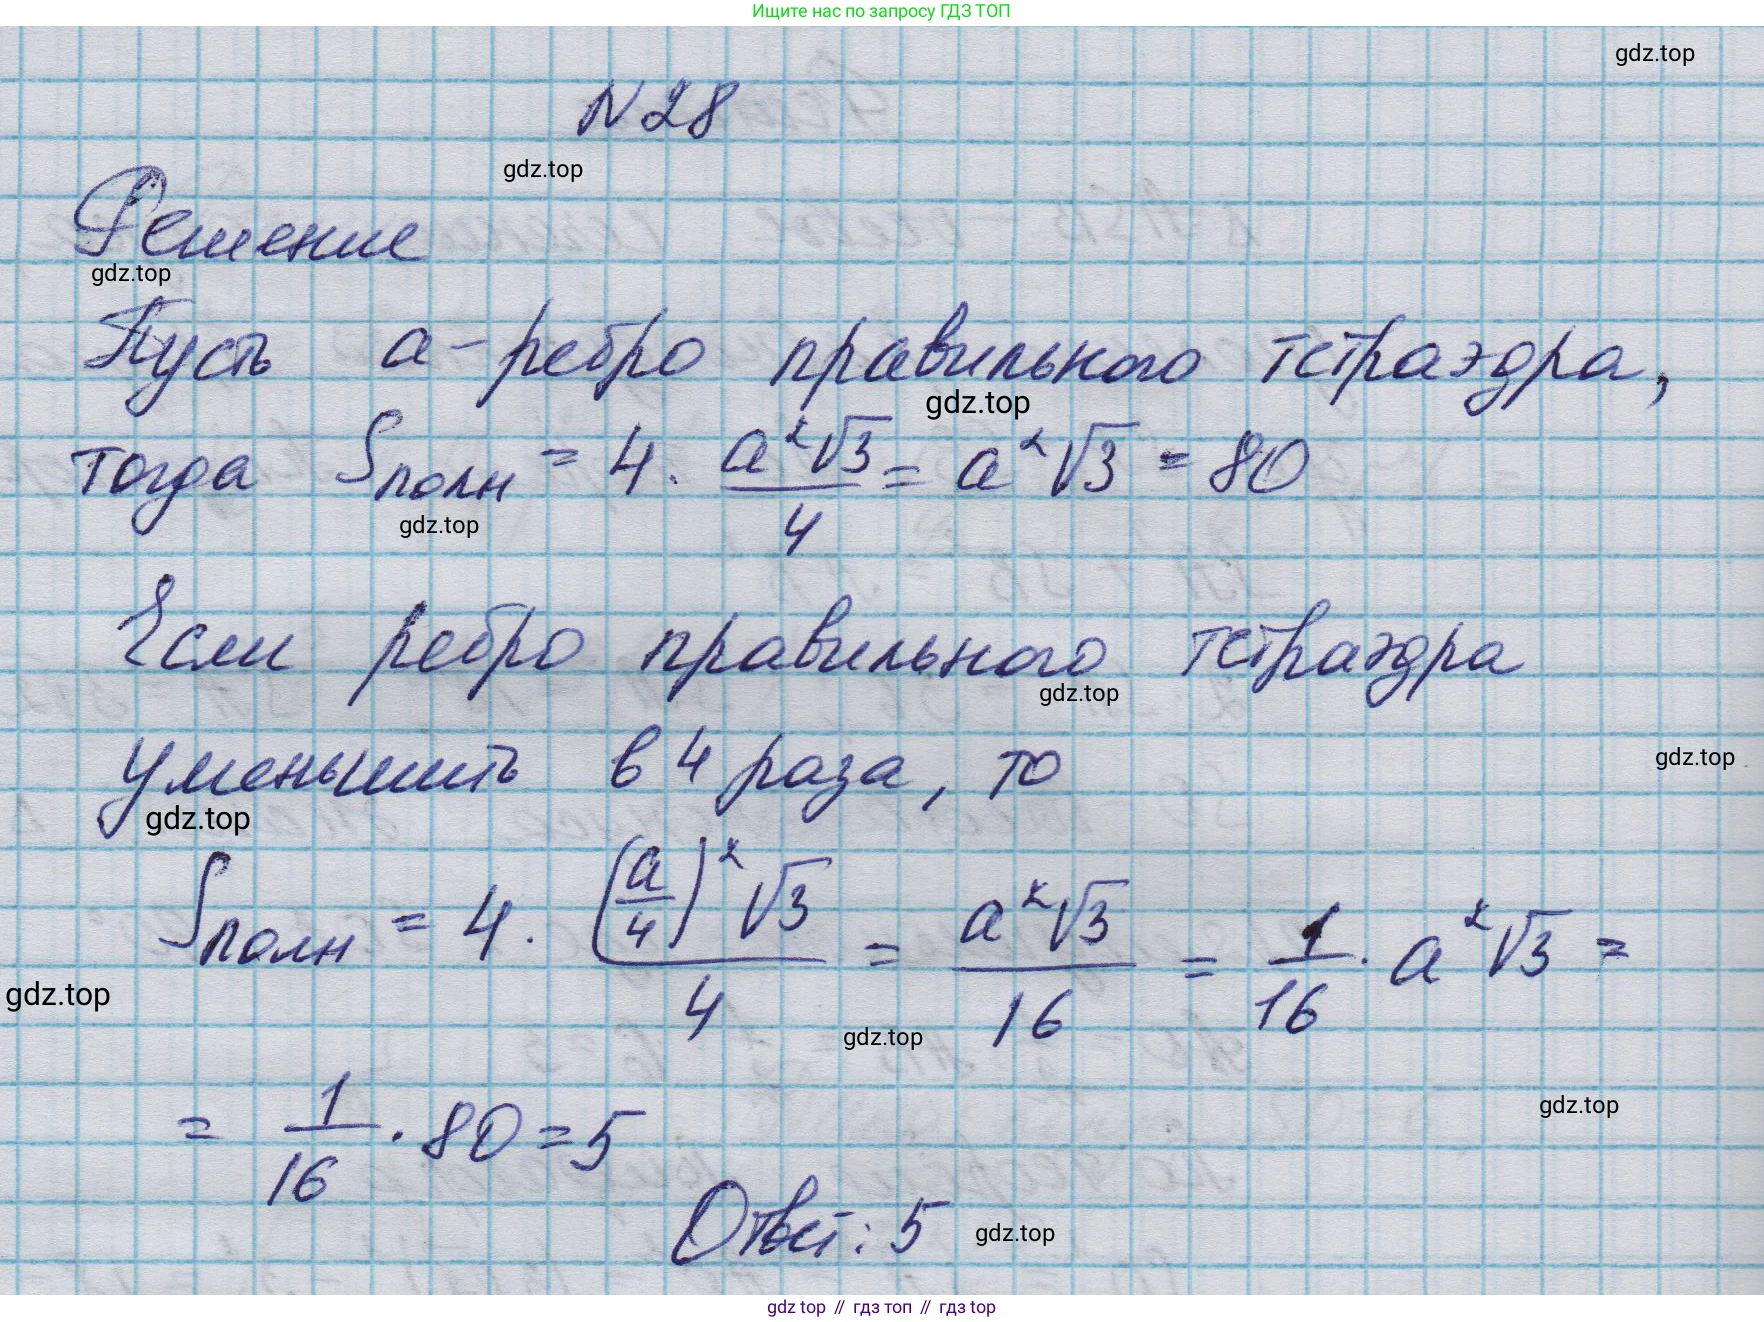 Ищите нас по запросу ГДЗ ТОП
gdz.top
N 28
gdz.top
Решение
gdz.top
Пусть a - ребро правильного тетраэдра,
gdz.top
тогда Sполн = 4 · a²√3/4 = a²√3 = 80
gdz.top
Если ребро правильного тетраэдра
gdz.top
уменьшить в 4 раза, то
gdz.top
gdz.top
Sполн = 4 · (a/4)²√3/4 = a²√3/16 = 1/16 · a²√3 =
gdz.top
gdz.top
= 1/16 · 80 = 5
gdz.top
Ответ: 5
gdz.top
gdz top // гдз топ // гдз top